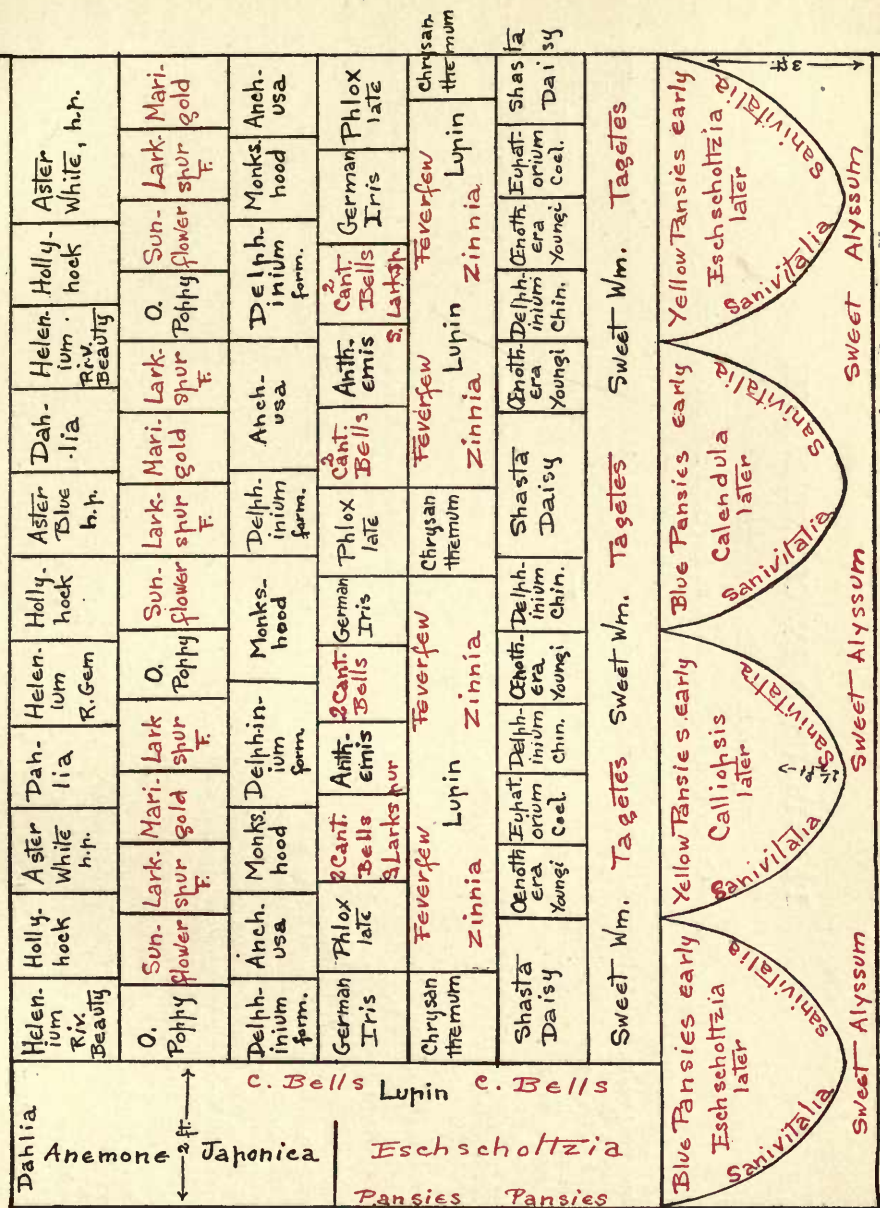 Dahlia
Helen-
ium
Riv.
Beauty
Holly-
hock
Aster
White
h.p.
Dah-
lia
Helen-
ium
R. Gem
Holly-
hock
Aster
Blue
h.p.
Dah-
lia
Helen-
ium.
Riv.
Beauty
Holly-
hock
Aster
White, h.p.
Anemone
Japonica
2 ft.
O.
Poppy
Sun-
flower
Lark-
spur
F.
Mari-
gold
Lark
spur
F.
O.
Poppy
Sun-
flower
Lark-
spur
F.
Mari-
gold
Lark-
spur
F.
O.
Poppy
Sun-
flower
Lark-
spur
F.
Mari-
gold
Delph-
inium
form.
Anch-
usa
Monks-
hood
Delph-in-
ium
form.
Monks-
hood
Delph-
inium
form.
Anch-
usa
Delph-
inium
form.
Monks-
hood
Anch-
usa
C. Bells
Lupin
C. Bells
German
Iris
Phlox
late
2 Cant.
Bells
S Larkspur
Anth-
emis
2 Cant.
Bells
German
Iris
Phlox
late
2
Cant.
Bells
Anth-
emis
2
Cant.
Bells
S. Larksp.
German
Iris
Phlox
late
Chrysan
themum
Feverfew
Lupin
Feverfew
Zinnia
Zinnia
Chrysan
themum
Feverfew
Lupin
Feverfew
Lupin
Zinnia
Zinnia
Chrysan
themum
Eschscholtzia
Pansies
Pansies
Shasta
Daisy
Œnoth-
era
Youngi
Eupat-
orium
Coel.
Delph-
inium
Chin.
Œnoth-
era
Youngi
Delph-
inium
Chin.
Shasta
Daisy
Œnoth-
era
Youngi
Delph-
inium
Chin.
Œnoth-
era
Youngi
Eupat-
orium
Coel.
Shasta
Daisy
Sweet Wm. Tagetes Sweet Wm. Tagetes Sweet Wm. Tagetes
Blue Pansies early
Eschscholtzia
later
Sanivitalia
Sanivitalia
Yellow Pansies early
Calliopsis
later
Sanivitalia
Sanivitalia
2½ ft
Blue Pansies early
Calendula
later
Sanivitalia
Sanivitalia
Yellow Pansies early
Eschscholtzia
later
Sanivitalia
Sanivitalia
3 ft
Sweet Alyssum
Sweet Alyssum
Sweet Alyssum